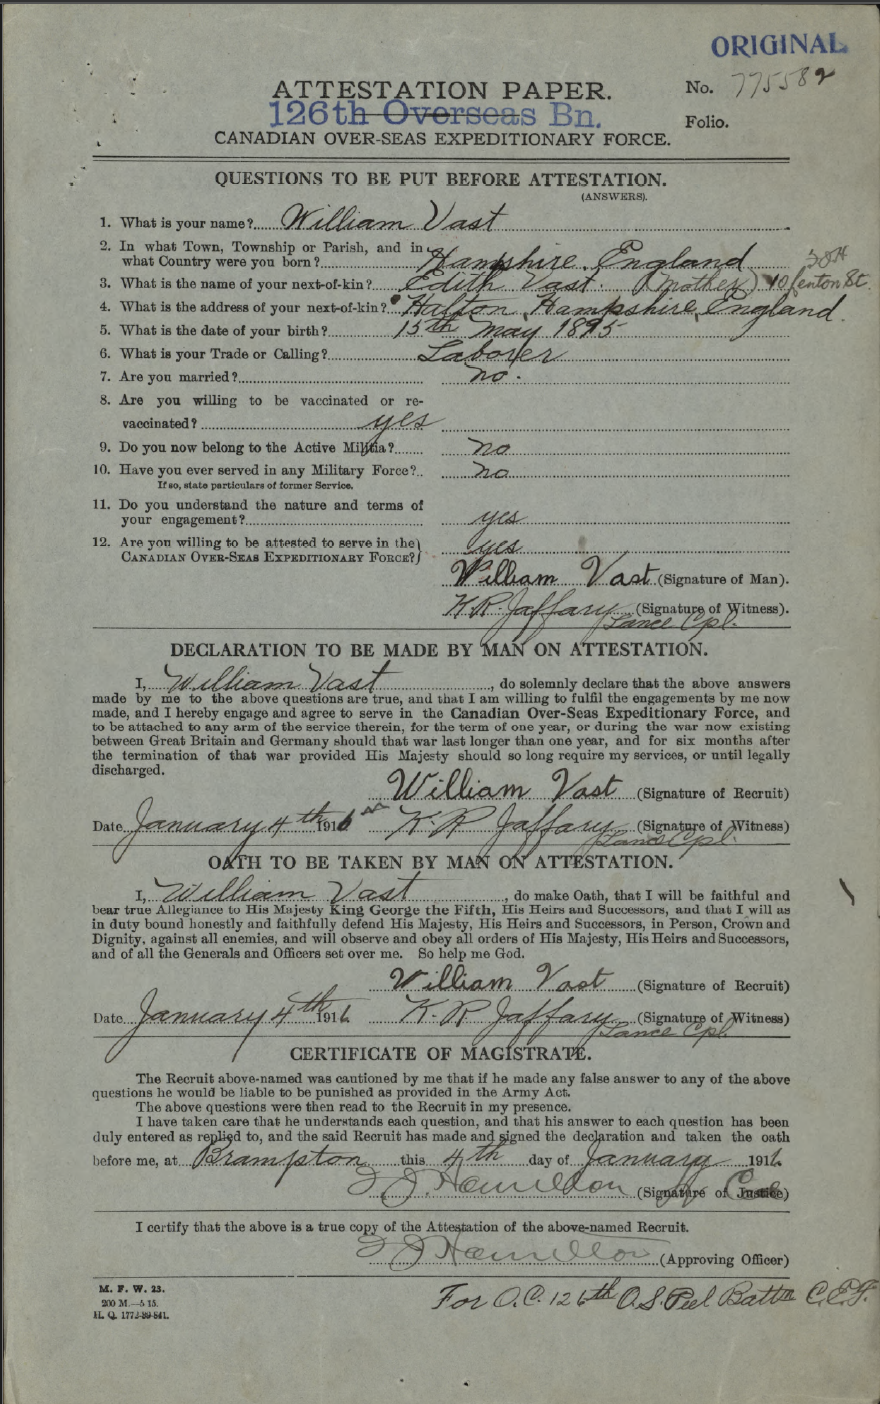 ORIGINAL
ATTESTATION PAPER.
No. 775582
126th Overseas Bn.
Folio.
CANADIAN OVER-SEAS EXPEDITIONARY FORCE.
QUESTIONS TO BE PUT BEFORE ATTESTATION.
(ANSWERS).
1. What is your name? William Vast
2. In what Town, Township or Parish, and in
what Country were you born? Hampshire, England
3. What is the name of your next-of-kin? Edith Vast. (Mother) 40 fenton St.
4. What is the address of your next-of-kin? Halton, Hampshire, England.
5. What is the date of your birth? 15th May 1895
6. What is your Trade or Calling? Laborer
7. Are you married? no.
8. Are you willing to be vaccinated or re-
vaccinated? yes
9. Do you now belong to the Active Militia? no
10. Have you ever served in any Military Force? no
If so, state particulars of former Service.
11. Do you understand the nature and terms of
your engagement? yes
12. Are you willing to be attested to serve in the
CANADIAN OVER-SEAS EXPEDITIONARY FORCE? yes
William Vast (Signature of Man).
K.R. Jaffary (Signature of Witness).
Lance Cpl.
DECLARATION TO BE MADE BY MAN ON ATTESTATION.
I, William Vast, do solemnly declare that the above answers
made by me to the above questions are true, and that I am willing to fulfil the engagements by me now
made, and I hereby engage and agree to serve in the Canadian Over-Seas Expeditionary Force, and
to be attached to any arm of the service therein, for the term of one year, or during the war now existing
between Great Britain and Germany should that war last longer than one year, and for six months after
the termination of that war provided His Majesty should so long require my services, or until legally
discharged.
William Vast (Signature of Recruit)
Date January 4th 1916 K R Jaffary (Signature of Witness)
Lance Cpl.
OATH TO BE TAKEN BY MAN ON ATTESTATION.
I, William Vast, do make Oath, that I will be faithful and
bear true Allegiance to His Majesty King George the Fifth, His Heirs and Successors, and that I will as
in duty bound honestly and faithfully defend His Majesty, His Heirs and Successors, in Person, Crown and
Dignity, against all enemies, and will observe and obey all orders of His Majesty, His Heirs and Successors,
and of all the Generals and Officers set over me. So help me God.
William Vast (Signature of Recruit)
Date January 4th 1916 K. R Jaffary (Signature of Witness)
Lance Cpl.
CERTIFICATE OF MAGISTRATE.
The Recruit above-named was cautioned by me that if he made any false answer to any of the above
questions he would be liable to be punished as provided in the Army Act.
The above questions were then read to the Recruit in my presence.
I have taken care that he understands each question, and that his answer to each question has been
duly entered as replied to, and the said Recruit has made and signed the declaration and taken the oath
before me, at Brampton this 4th day of January 1916
Hamilton (Signature of Justice)
I certify that the above is a true copy of the Attestation of the above-named Recruit.
Hamilton (Approving Officer)
M. F. W. 23.
200 M.—5 15.
H. Q. 1772-39-841.
For O.C. 126th O.S. Peel Battn C.E.F.